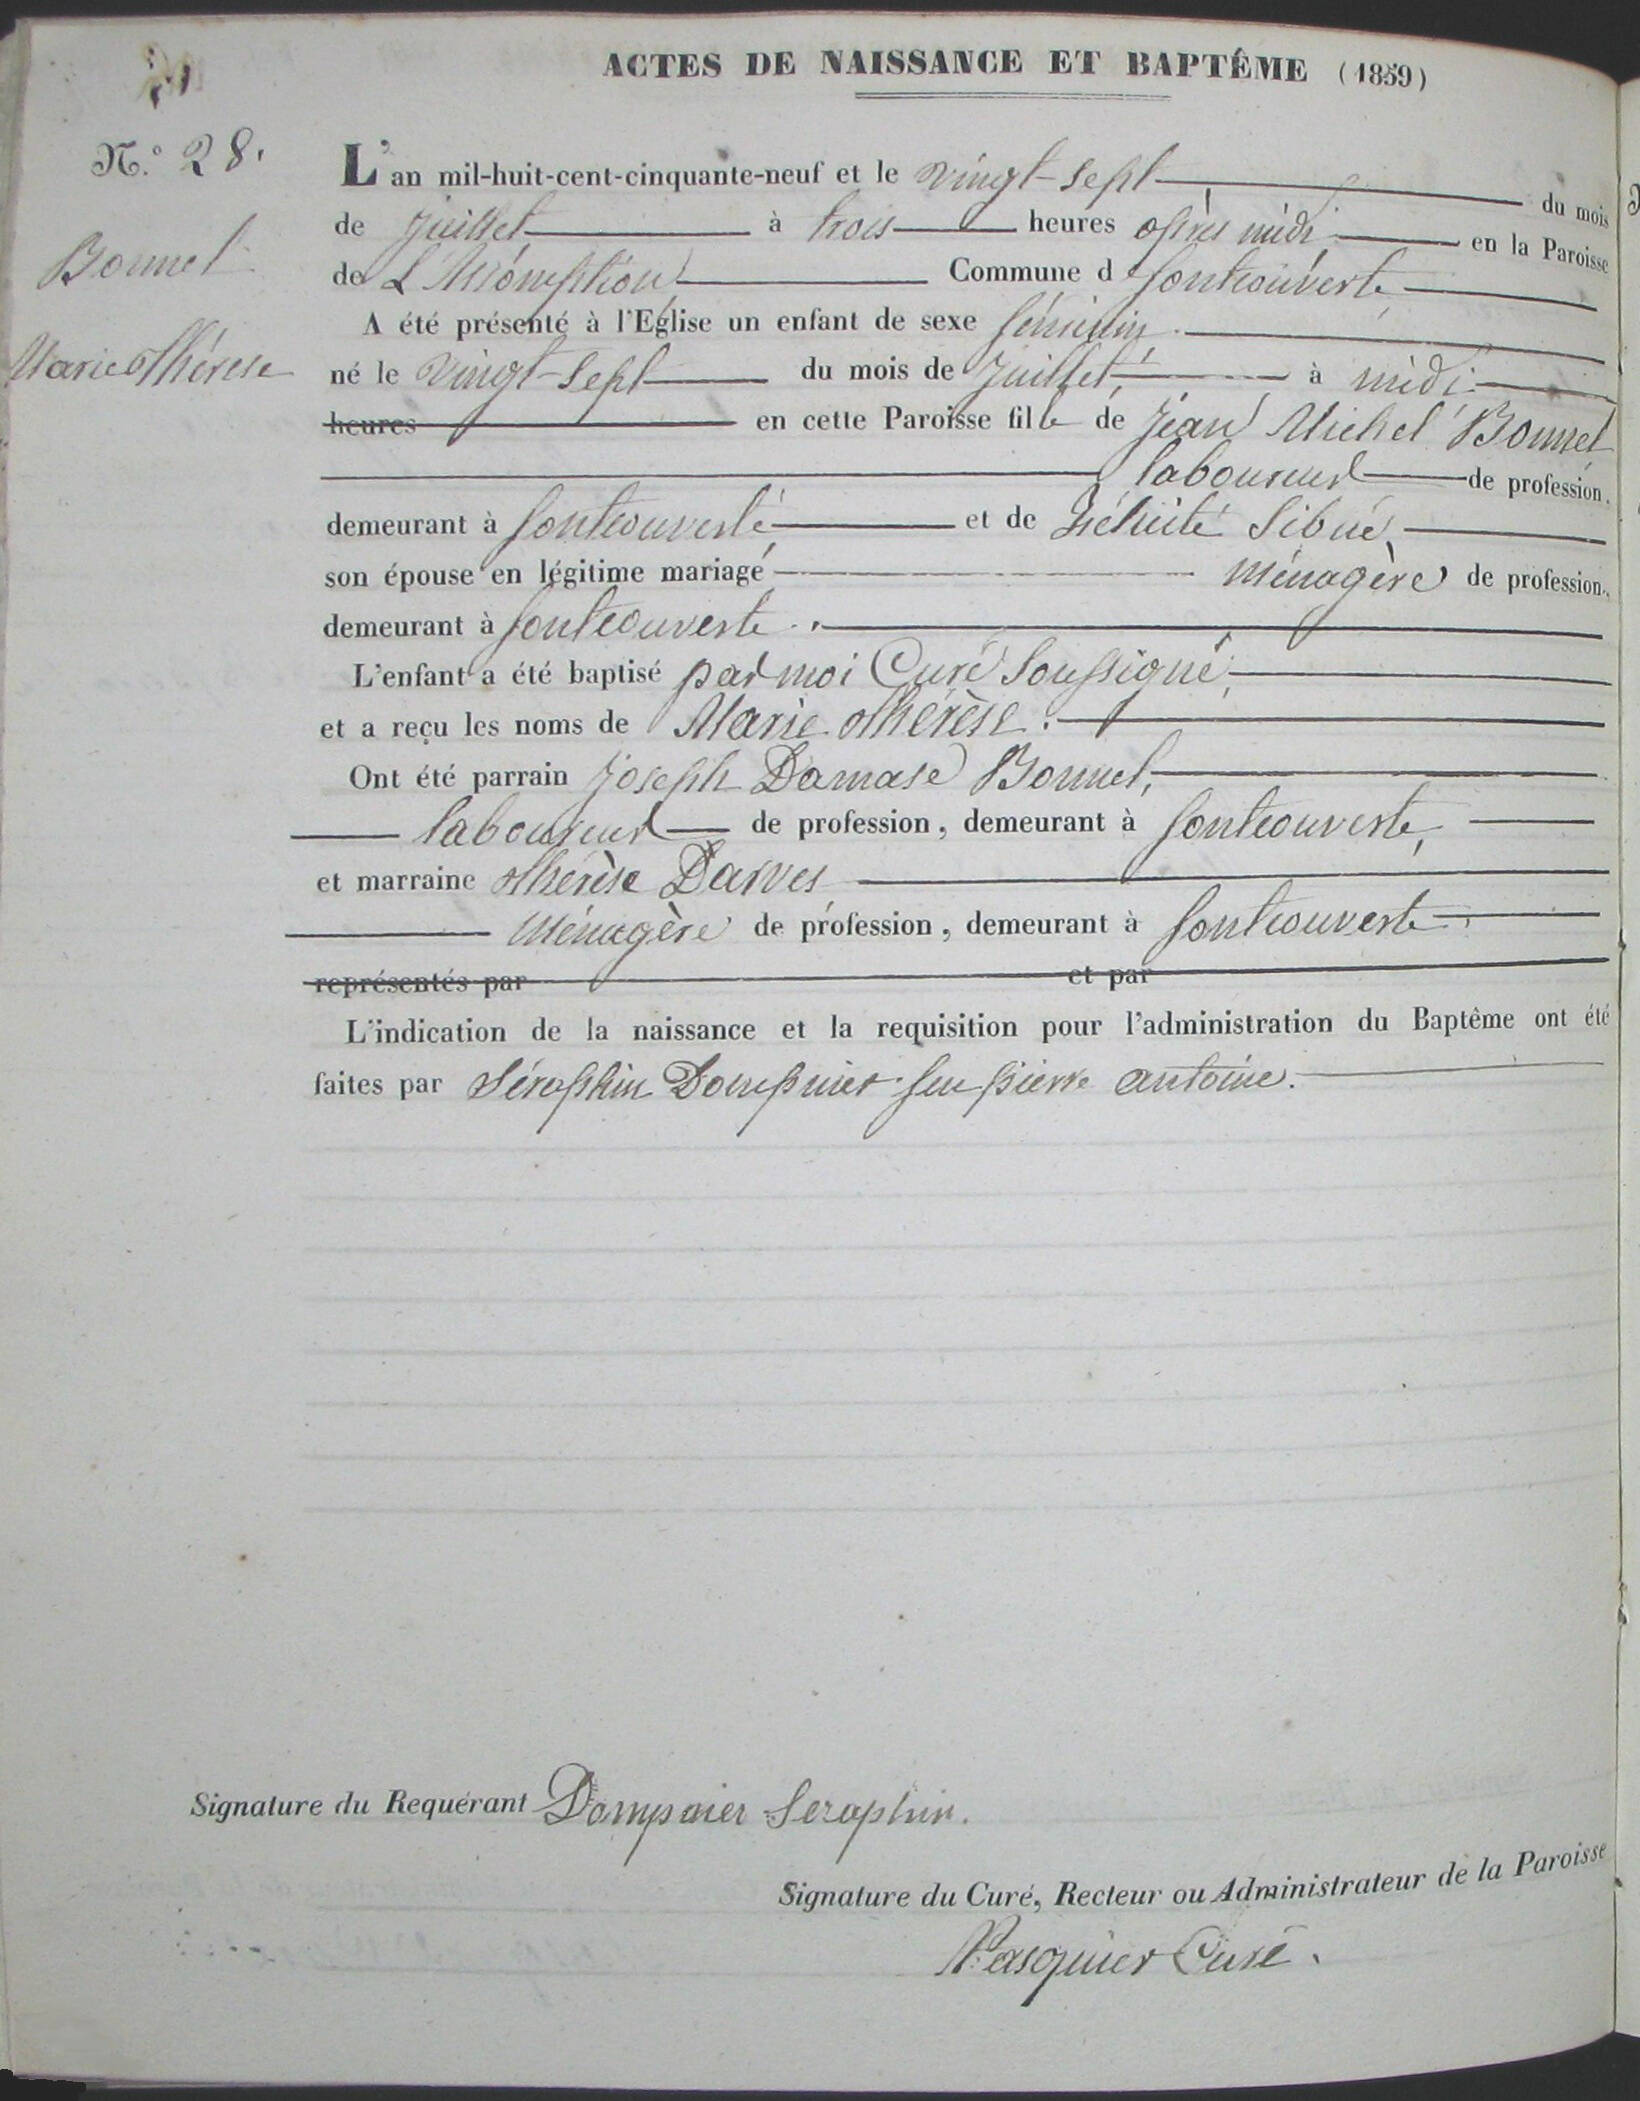 ACTES DE NAISSANCE ET BAPTÊME (1859)
N.º 28.
Bonnel
Marie Thérèse
L'an mil-huit-cent-cinquante-neuf et le vingt-sept du mois
de juillet à trois heures après midi en la Paroisse
de L'Assomption Commune de fontcouverte
A été présenté à l'Eglise un enfant de sexe féminin
né le vingt-sept du mois de juillet, à midi
heures en cette Paroisse fille de Jean Michel Bonnel
laboureur de profession.
demeurant à fontcouverte et de Félicité Sibué
son épouse en légitime mariage ménagère de profession.
demeurant à fontcouverte.
L'enfant a été baptisé par moi Curé Soussigné,
et a reçu les noms de Marie Thérèse.
Ont été parrain Joseph Damase Bonnel,
laboureur de profession, demeurant à fontcouverte,
et marraine Thérèse Darves
ménagère de profession, demeurant à fontcouverte.
représentés par et par
L'indication de la naissance et la requisition pour l'administration du Baptême ont été
faites par Séraphin Dompnier feu pierre antoine.
Signature du Requérant Dompnier Seraphin.
Signature du Curé, Recteur ou Administrateur de la Paroisse
Pasquier Curé.